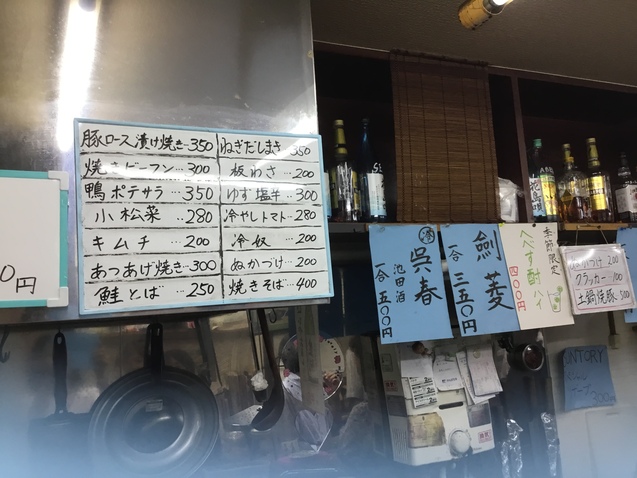 0円
豚ロース漬け焼き…350
焼きビーフン…300
鴨ポテサラ…350
小松菜…280
キムチ…200
あつあげ焼き…300
鮭とば…250
ねぎだしまき 350
板わさ…200
ゆず塩牛…300
冷やしトマト…280
冷奴…200
ぬかづけ…200
焼きそば…400
呉春
池田酒
一合 五〇〇円
剣菱
一合 三五〇円
季節限定
へべす酎ハイ
四〇〇円
ぬかづけ 200
クラッカー 100
土鍋焼豚 500
SUNTORY